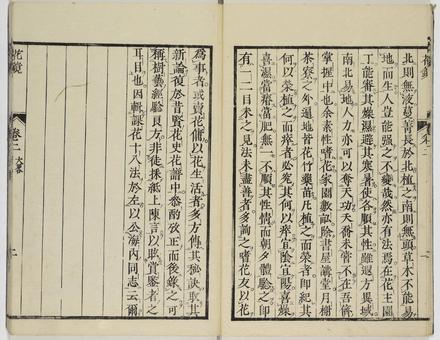 北則無液蔓菁長於北植之南則無頭草木不能易
地而生人豈能强之不變哉然亦有法焉在花主園
丁能審其燥濕避其寒暑使各順其性雖遐方異域
南北易地人力亦可以奪天功夭喬未嘗不在吾儕
掌握中也余素性嗜花家園數畝除書屋講堂月榭
茶寮之外遍地皆花竹藥苗凡植之而榮者卽紀其
何以榮植之而瘁者必究其何以瘁宜陰宜陽喜燥
喜濕當瘠當肥無一不順其性情而朝夕體驗之卽
有一二目未之見法未盡善者多詢之嗜花友以花
爲事者或賣花傭以花生活者多方傳其秘訣取其
新論復於昔賢花史花譜中參酌攷正而後錄之可
稱樹藝經驗良方非徒採紙上陳言以眩賞鑒者之
耳目也因輯課花十八法於左以公海內同志云爾
花鏡
卷二 大畧
二